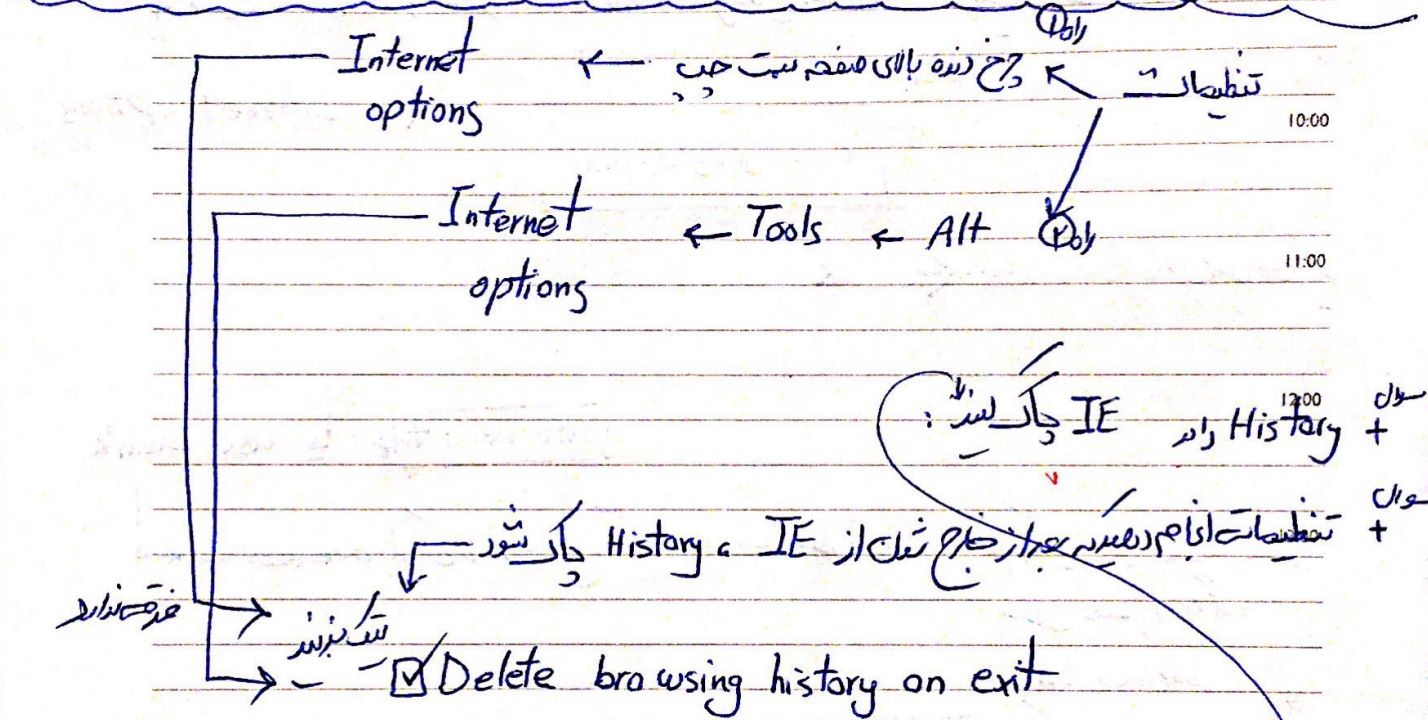 راه ۱
تنظیمات ← چرخ دنده بالای صفحه سمت چپ ← Internet options
10:00
راه ۲ Alt ← Tools ← Internet options
11:00
12:00
سوال + History را در IE پاک کنید :
سوال + تنظیمات انجام دهید که بعد از خارج شدن از IE ، History پاک شود
فرقی ندارد
تیک بزنید
☑ Delete browsing history on exit